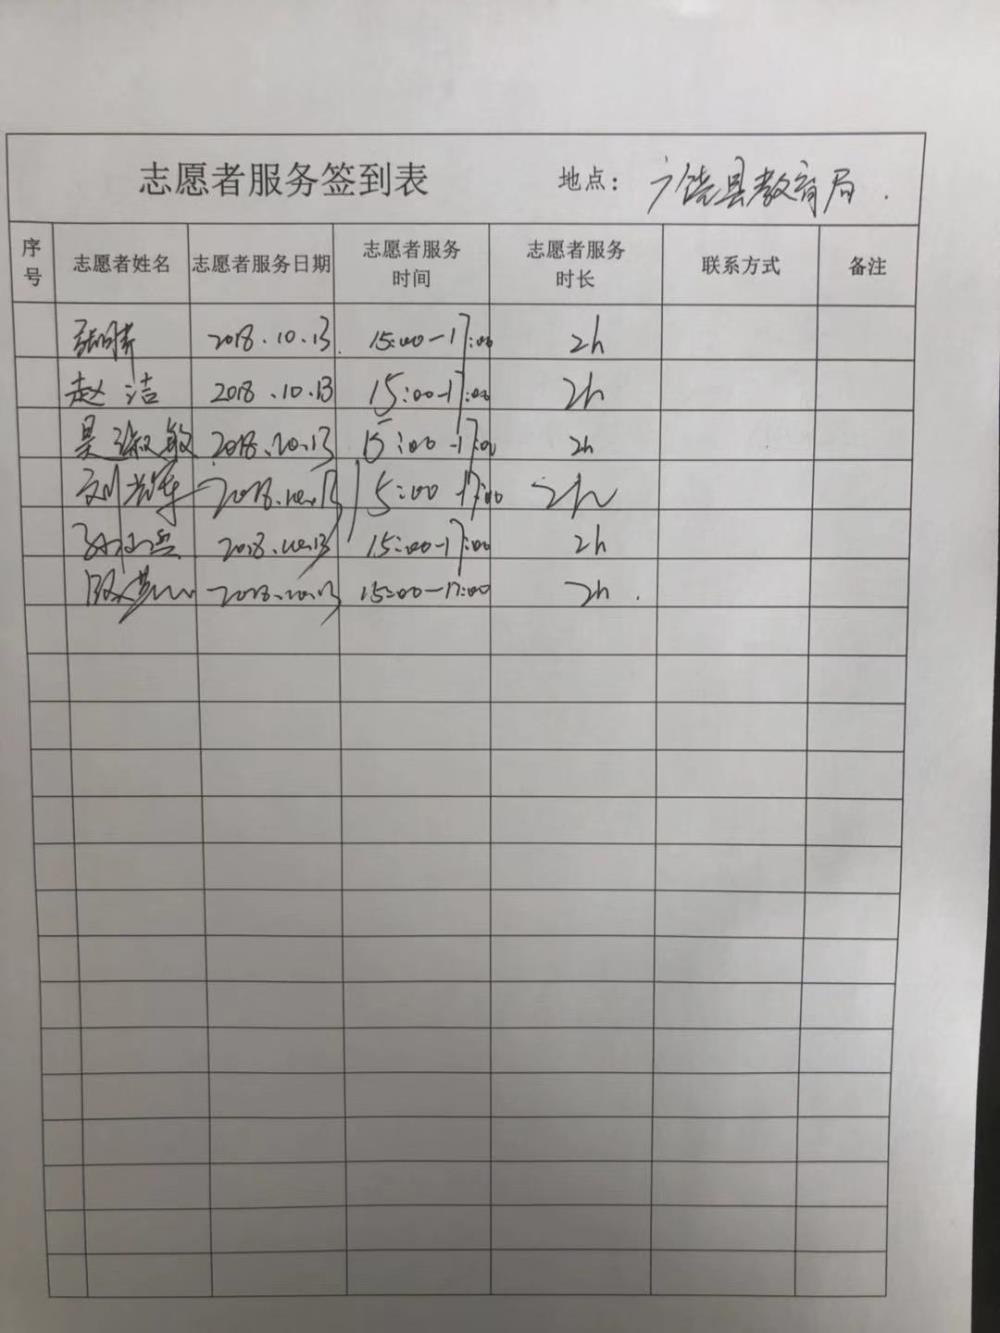 志愿者服务签到表 地点：广饶县教育局.
序号 志愿者姓名 志愿者服务日期 志愿者服务时间 志愿者服务时长 联系方式 备注
2018.10.13. 15:00-17:00 2h
赵洁 2018.10.13 15:00-17:00 2h
吴淑敏 2018.10.13 15:00-17:00 2h
刘 2018.10.13 15:00-17:00 2h
2018.10.13 15:00-17:00 2h
2018.10.13 15:00-17:00 2h.